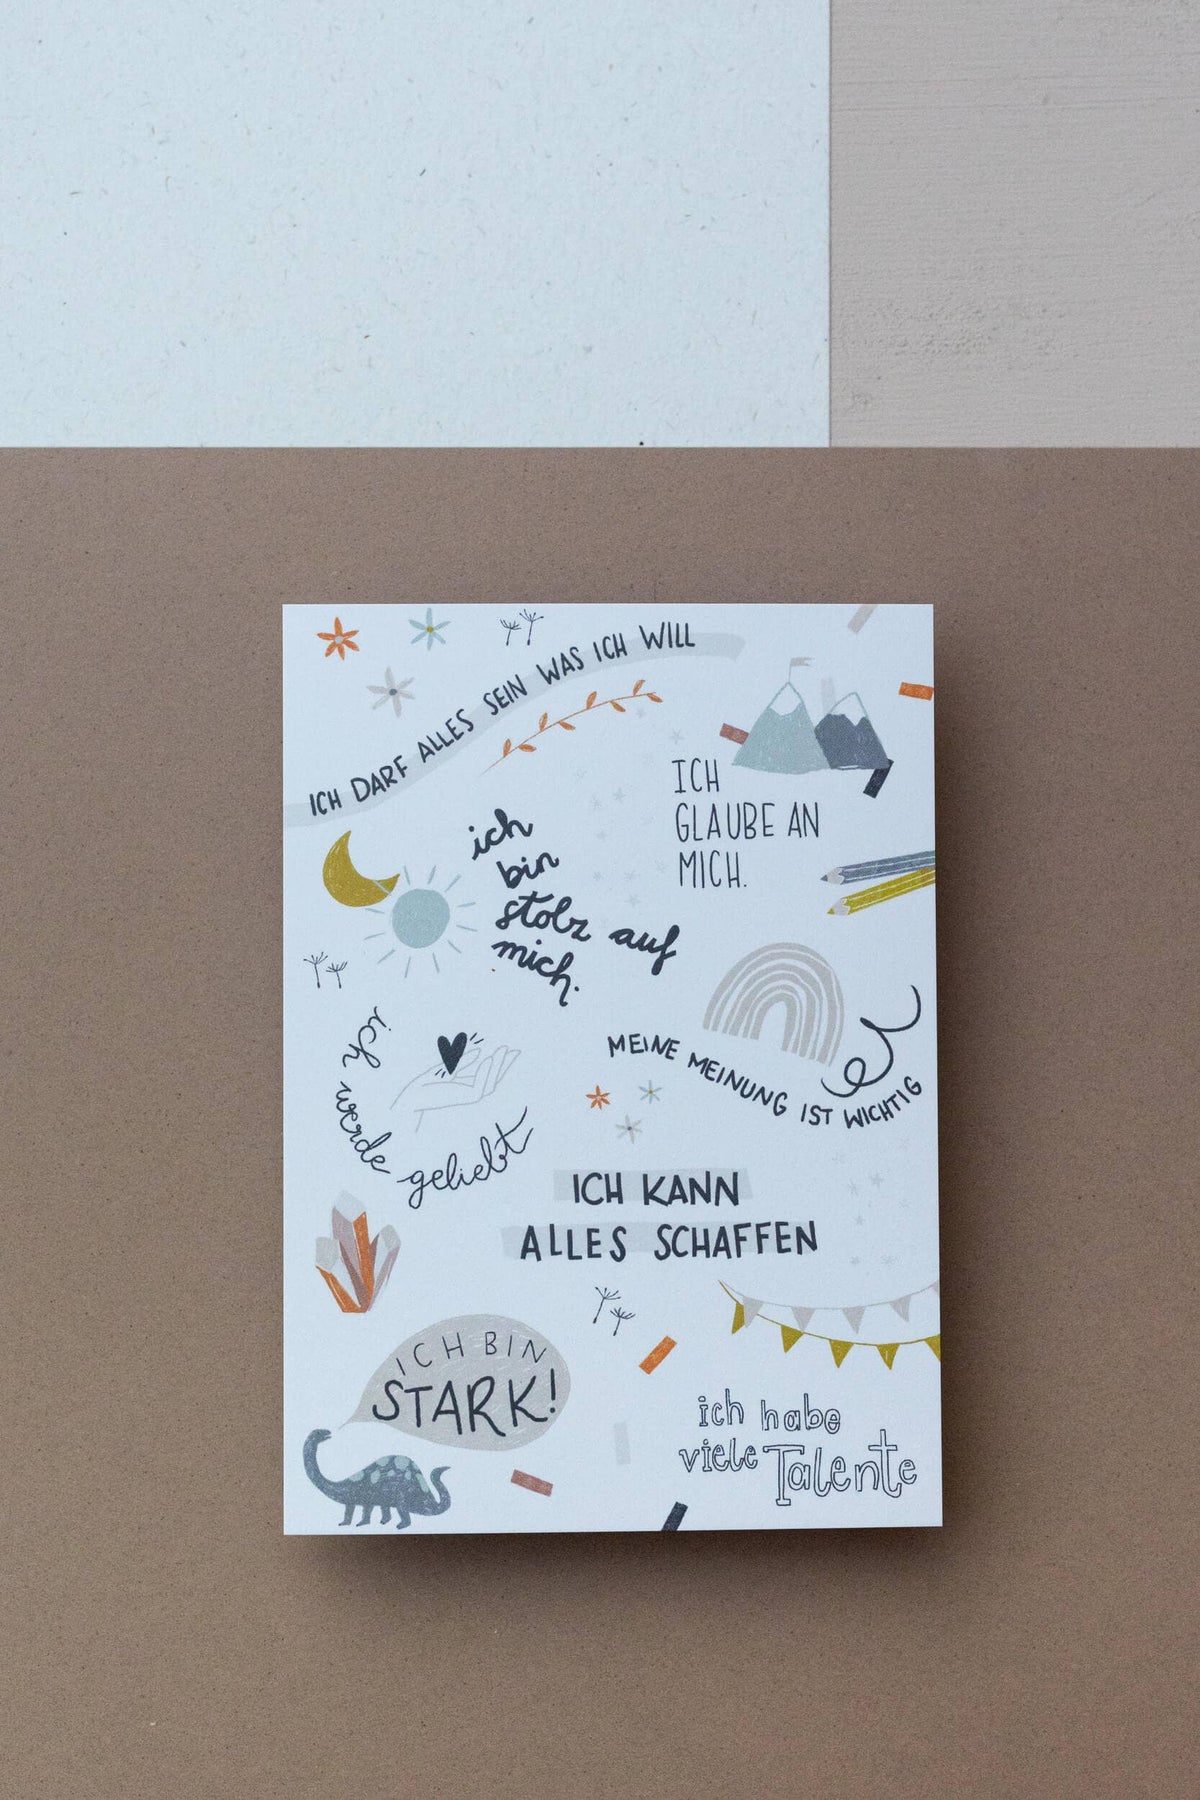 ICH DARF ALLES SEIN WAS ICH WILL
ICH
GLAUBE AN
MICH.
ich
bin
stolz auf
mich.
MEINE MEINUNG IST WICHTIG
ich werde geliebt
ICH KANN
ALLES SCHAFFEN
ICH BIN
STARK!
ich habe
viele Talente